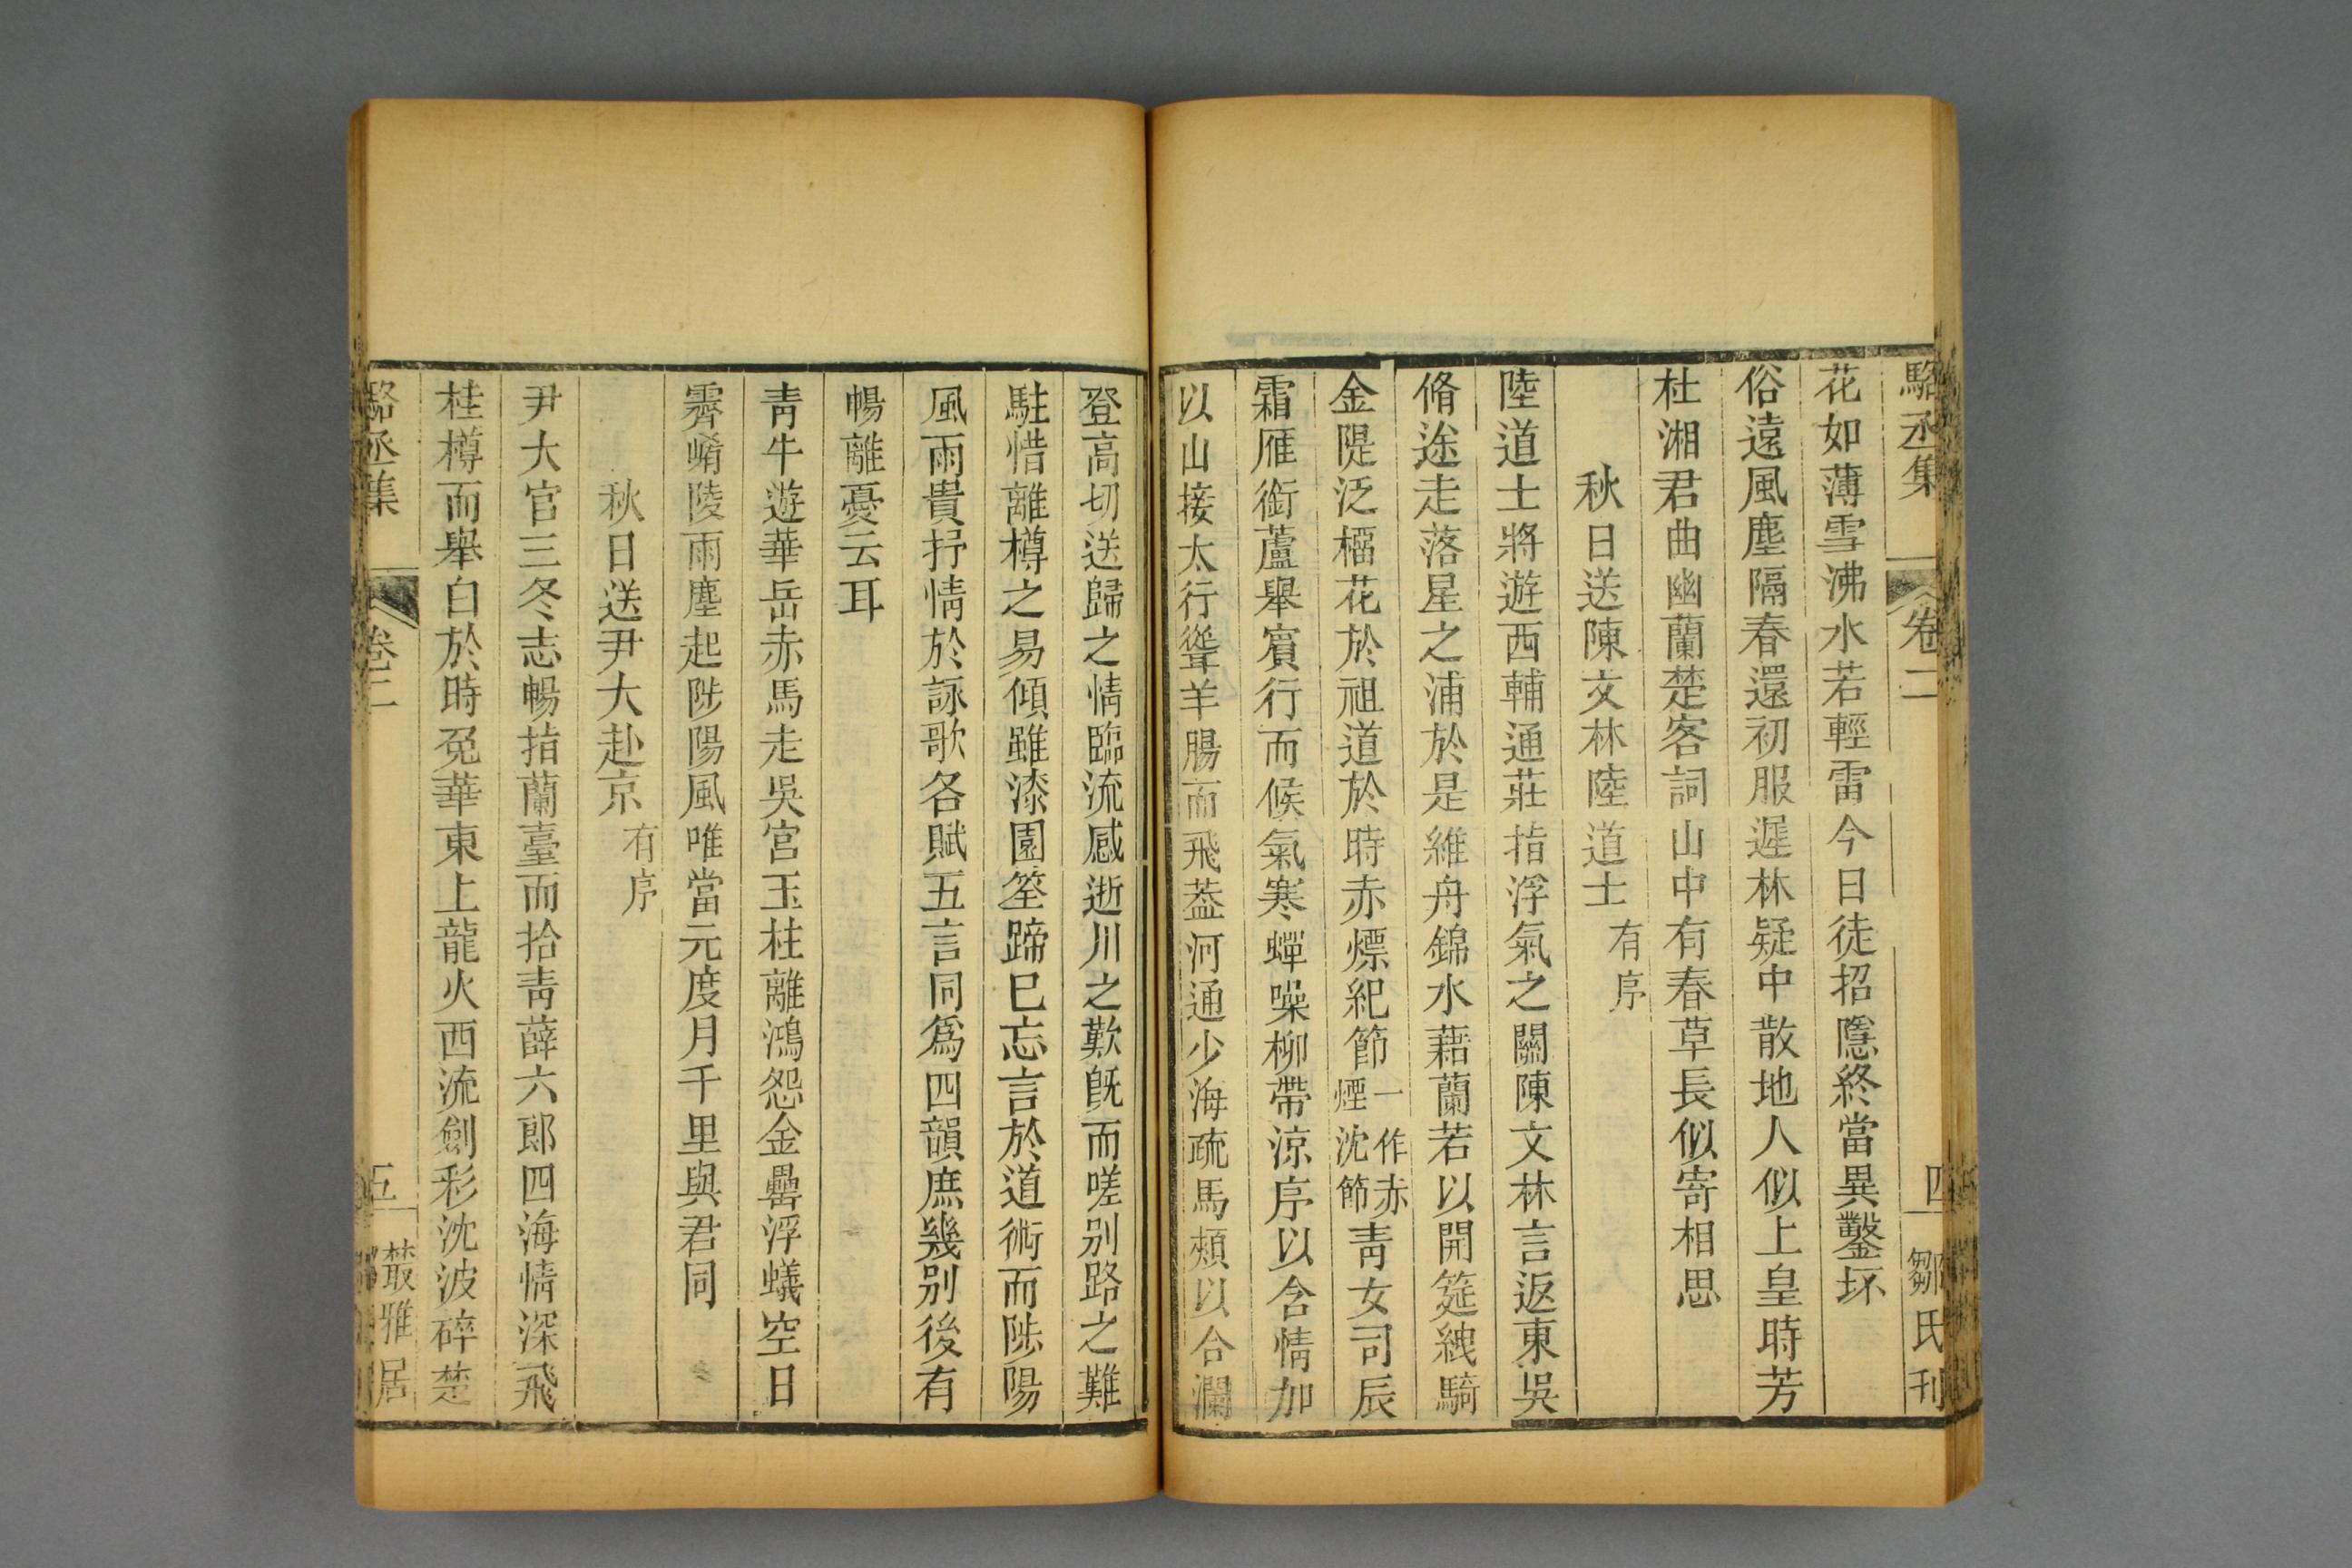 駱丞集 卷二 四 鄒氏刊
花如薄雪沸水若輕雷今日徒招隱終當異鑿坏
俗遠風塵隔春還初服遲林疑中散地人似上皇時芳
杜湘君曲幽蘭楚客詞山中有春草長似寄相思
秋日送陳文林陸道士有序
陸道士將遊西輔通莊指浮氣之關陳文林言返東吳
脩途走落星之浦於是維舟錦水藉蘭若以開筵絏騎
金隄泛橊花於祖道於時赤熛紀節一作赤煙沈節青女司辰
霜雁銜蘆舉賓行而候氣寒蟬噪柳帶涼序以含情加
以山接太行聳羊腸而飛葢河通少海疏馬頰以合瀾
登高切送歸之情臨流感逝川之歎旣而嗟别路之難
駐惜離樽之易傾雖漆園筌蹄已忘言於道術而陟陽
風雨貴抒情於詠歌各賦五言同爲四韻庶幾别後有
暢離憂云耳
青牛遊華岳赤馬走吳宮玉柱離鴻怨金罍浮蟻空日
霽崤陵雨塵起陟陽風唯當元度月千里與君同
秋日送尹大赴京有序
尹大官三冬志暢指蘭臺而拾青薛六郎四海情深飛
桂樽而舉白於時兔華東上龍火西流劍彩沈波碎楚
駱丞集 卷二 五 叢雅居